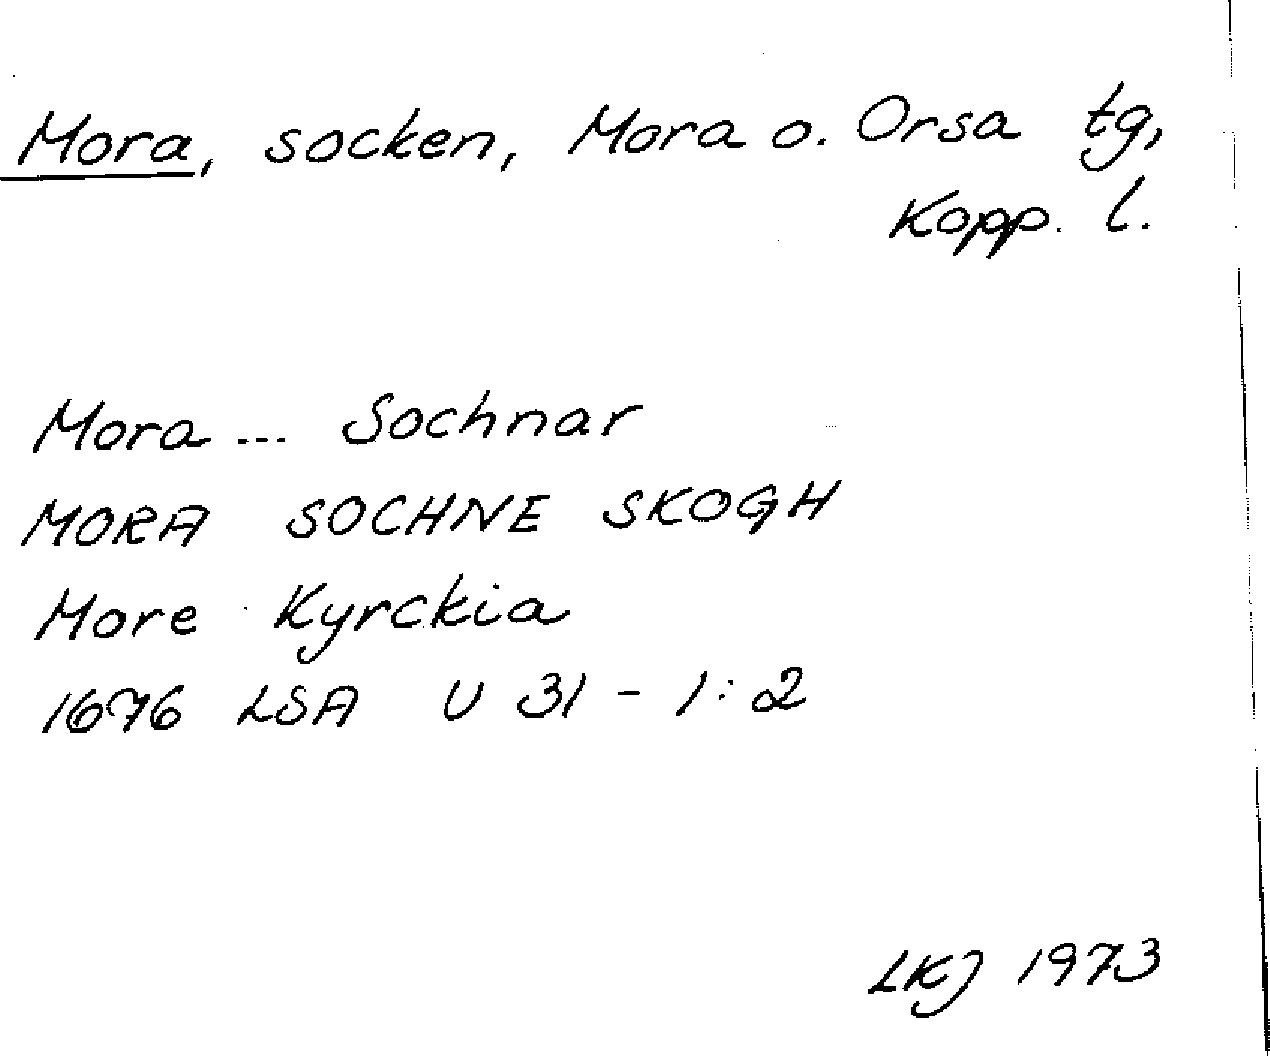 Mora, socken, Mora o. Orsa tg,
Kopp. l.
Mora ... Sochnar
MORA SOCHNE SKOGH
More Kyrckia
1676 LSA U 31 - 1:2
LKJ 1973